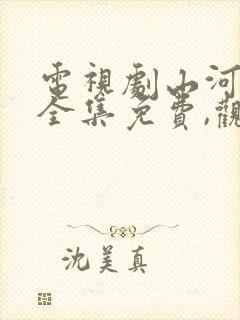 電視劇山河
全集免費,觀
沈美真